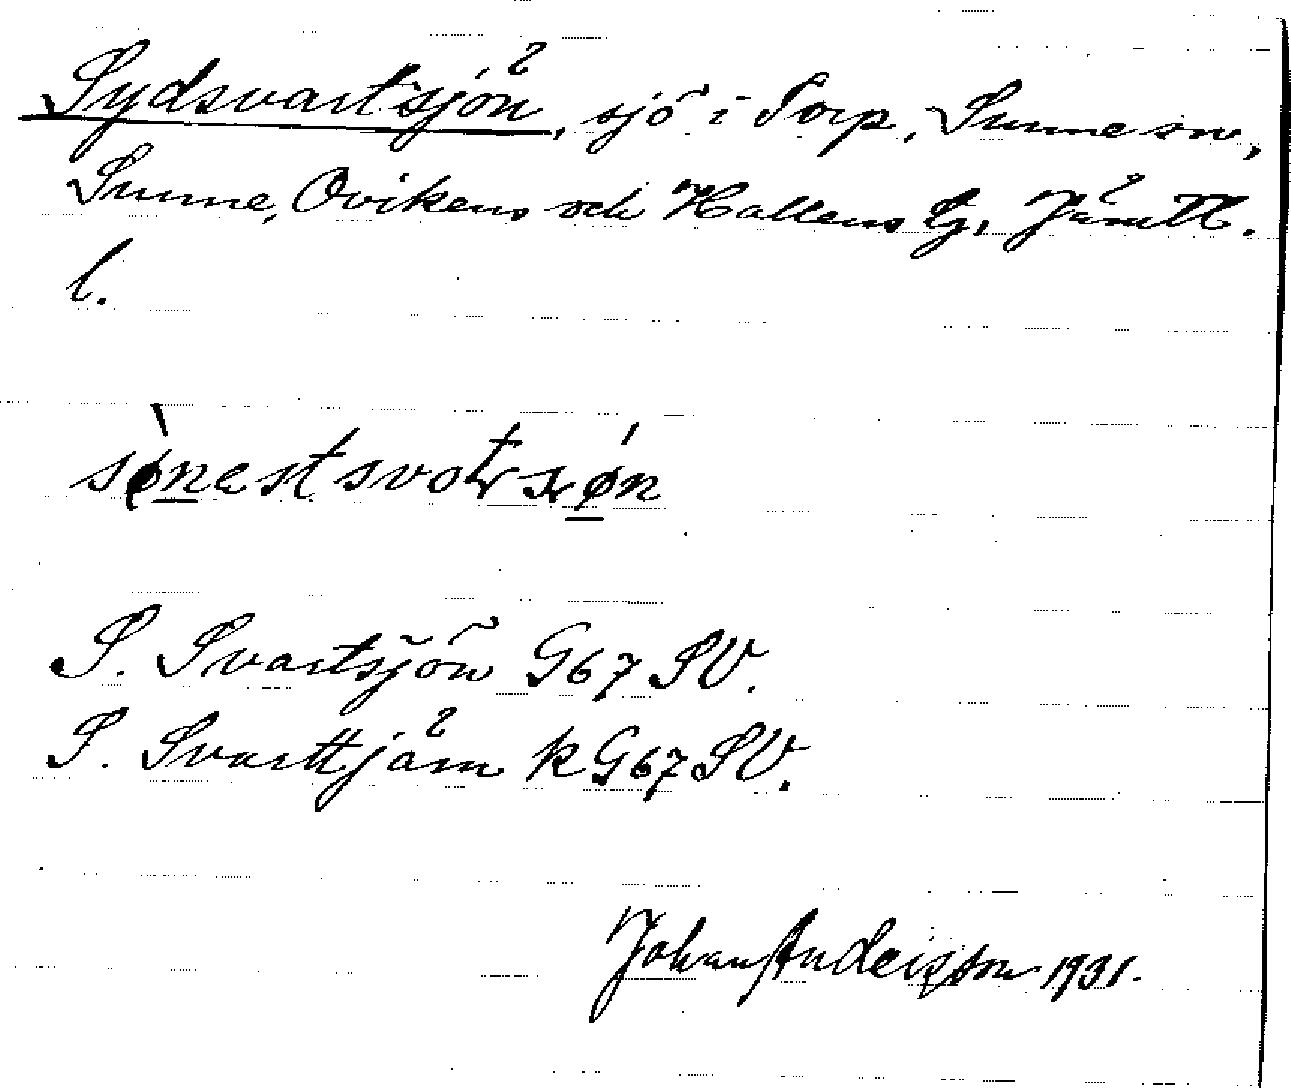 Sydsvartsjön, sjö i Torp, Sunne sn,
Sunne, Ovikens och Hallens tg, Jämtl.
l.
sø̀nest svot sǿn
S. Svartsjön G67 SV.
S. Svarttjärn k G67 SV.
Johan Andersson 1931.